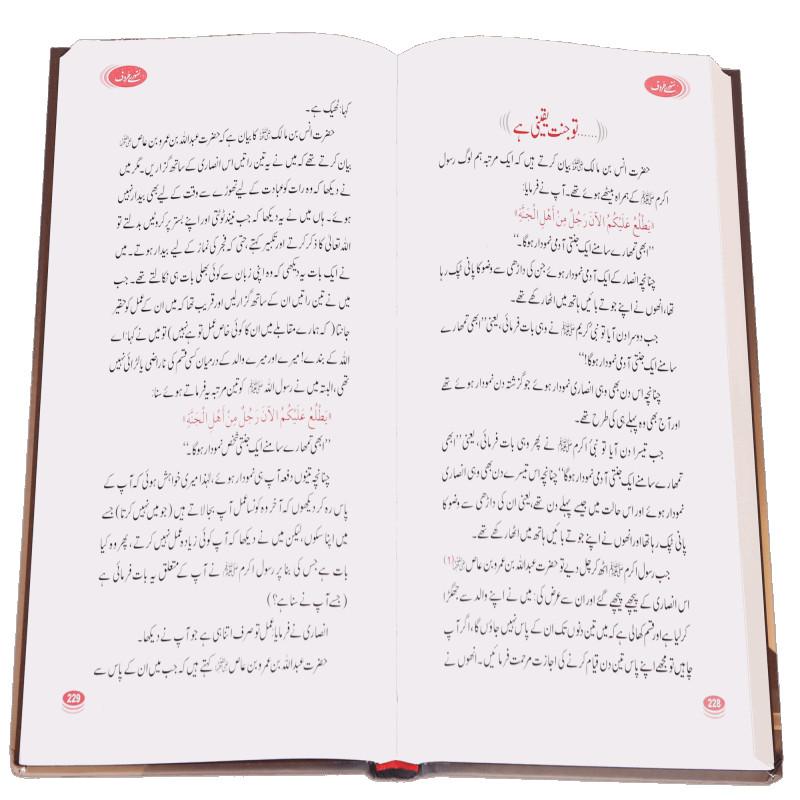 سنہرے حروف
.....تو جنت یقینی ہے
حضرت انس بن مالک رضی اللہ عنہ بیان کرتے ہیں کہ ایک مرتبہ ہم لوگ رسول
اکرم ﷺ کے ہمراہ بیٹھے ہوئے تھے۔ آپ نے فرمایا:
«يَطْلُعُ عَلَيْكُمُ الْآنَ رَجُلٌ مِنْ أَهْلِ الْجَنَّةِ»
’’ابھی تمھارے سامنے ایک جنتی آدمی نمودار ہوگا۔‘‘
چنانچہ انصار کے ایک آدمی نمودار ہوئے جن کی داڑھی سے وضو کا پانی ٹپک رہا
تھا، انھوں نے اپنے جوتے بائیں ہاتھ میں اٹھا رکھے تھے۔
جب دوسرا دن آیا تو نبی کریم ﷺ نے وہی بات فرمائی، یعنی ’’ابھی تمھارے
سامنے ایک جنتی آدمی نمودار ہوگا!‘‘
چنانچہ اس دن بھی وہی انصاری نمودار ہوئے جو گزشتہ دن نمودار ہوئے تھے
اور آج بھی وہ پہلے ہی کی طرح تھے۔
جب تیسرا دن آیا تو نبیٔ اکرم ﷺ نے پھر وہی بات فرمائی، یعنی ’’ابھی
تمھارے سامنے ایک جنتی آدمی نمودار ہوگا‘‘ چنانچہ اس تیسرے دن بھی وہی انصاری
نمودار ہوئے اور اس حالت میں جیسے پہلے دن تھے، یعنی ان کی داڑھی سے وضو کا
پانی ٹپک رہا تھا اور انھوں نے اپنے جوتے بائیں ہاتھ میں اٹھا رکھے تھے۔
جب رسول اکرم ﷺ اٹھ کر چل دیے تو حضرت عبداللہ بن عمرو بن عاص رضی اللہ عنہ (۱)
اس انصاری کے پیچھے پیچھے گئے اور ان سے عرض کی: میں نے اپنے والد سے جھگڑا
کر لیا ہے اور قسم کھالی ہے کہ میں تین دنوں تک ان کے پاس نہیں جاؤں گا، اگر آپ
چاہیں تو مجھے اپنے پاس تین دن قیام کرنے کی اجازت مرحمت فرمائیں۔ انھوں نے
228
سنہرے حروف
کہا: ٹھیک ہے۔
حضرت انس بن مالک رضی اللہ عنہ کا بیان ہے کہ حضرت عبداللہ بن عمرو بن عاص رضی اللہ عنہ
بیان کرتے تھے کہ میں نے یہ تین راتیں اس انصاری کے ساتھ گزاریں۔ مگر میں
نے دیکھا کہ وہ رات کو عبادت کے لیے تھوڑے سے وقت کے لیے بھی بیدار نہیں
ہوئے۔ ہاں میں نے یہ دیکھا کہ جب نیند ٹوٹتی اور اپنے بستر پر کروٹیں بدلتے تو
اللہ تعالیٰ کا ذکر کرتے اور تکبیر کہتے حتی کہ فجر کی نماز کے لیے بیدار ہوتے۔ میں
نے ایک بات یہ دیکھی کہ وہ اپنی زبان سے کوئی بھلی بات ہی نکالتے تھے۔ جب
میں نے تین راتیں ان کے ساتھ گزار لیں اور قریب تھا کہ میں ان کے عمل کو حقیر
جانتا (کہ ہمارے مقابلے میں ان کا کوئی خاص عمل تو ہے نہیں) تو میں نے کہا: اے
اللہ کے بندے! میرے اور میرے والد کے درمیان کسی قسم کی ناراضی یا لڑائی نہیں
تھی، البتہ میں نے رسول اللہ ﷺ کو تین مرتبہ یہ فرماتے ہوئے سنا:
«يَطْلُعُ عَلَيْكُمُ الْآنَ رَجُلٌ مِنْ أَهْلِ الْجَنَّةِ»
’’ابھی تمھارے سامنے ایک جنتی شخص نمودار ہوگا۔‘‘
چنانچہ تینوں دفعہ آپ ہی نمودار ہوئے، لہٰذا میری خواہش ہوئی کہ آپ کے
پاس رہ کر دیکھوں کہ آخر وہ کونسا عمل آپ بجا لاتے ہیں (جو میں نہیں کرتا) جسے
میں اپنا سکوں، لیکن میں نے دیکھا کہ آپ کوئی زیادہ عمل نہیں کرتے، پھر وہ کیا
بات ہے جس کی بنا پر رسول اکرم ﷺ نے آپ کے متعلق یہ بات فرمائی ہے
(جسے آپ نے سنا ہے؟)
انصاری نے فرمایا: عمل تو صرف اتنا ہی ہے جو آپ نے دیکھا۔
حضرت عبداللہ بن عمرو بن عاص رضی اللہ عنہ کہتے ہیں کہ جب میں ان کے پاس سے
229